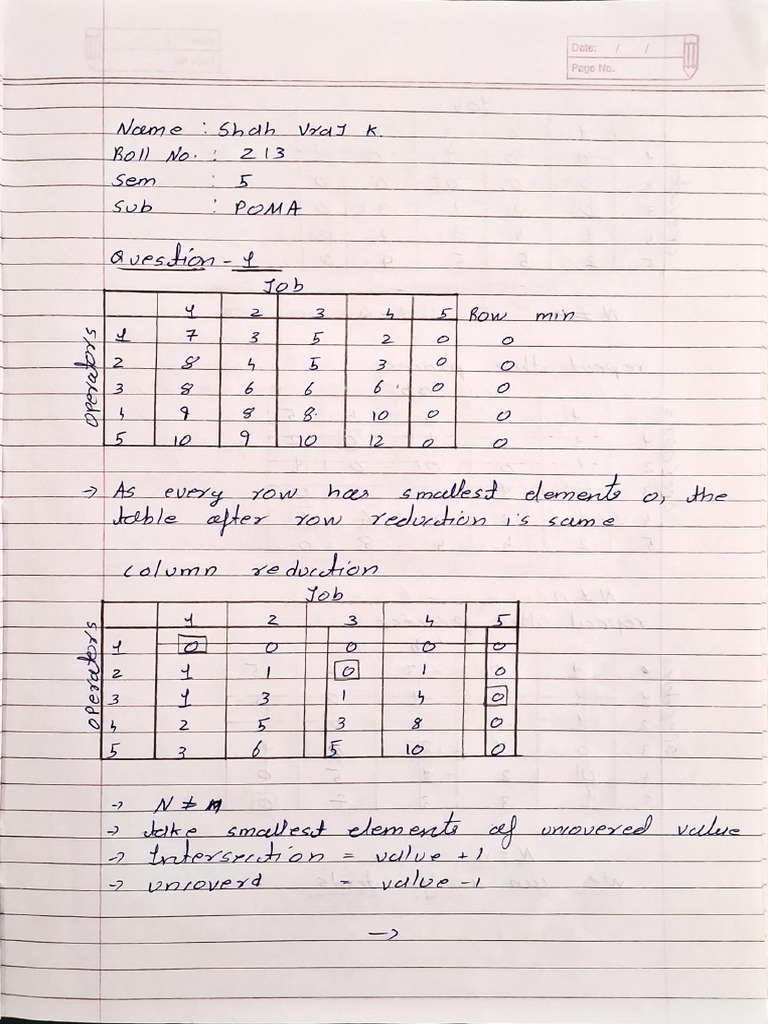 Date: / /
Page No.
Name : Shah Vraj K.
Roll No. : 213
Sem : 5
Sub : POMA
Question - 1
Job
1 2 3 4 5 Row min
Operators
1 7 3 5 2 0 0
2 8 4 5 3 0 0
3 8 6 6 6 0 0
4 9 8 8 10 0 0
5 10 9 10 12 0 0
→ As every row has smallest elements 0, the
table after row reduction is same
column reduction
Job
1 2 3 4 5
Operators
1 0 0 0 0 0
2 1 1 0 1 0
3 1 3 1 4 0
4 2 5 3 8 0
5 3 6 5 10 0
→ N ≠ n
→ take smallest elements of uncovered value
→ Intersection = value +1
→ uncoverd = value -1
→